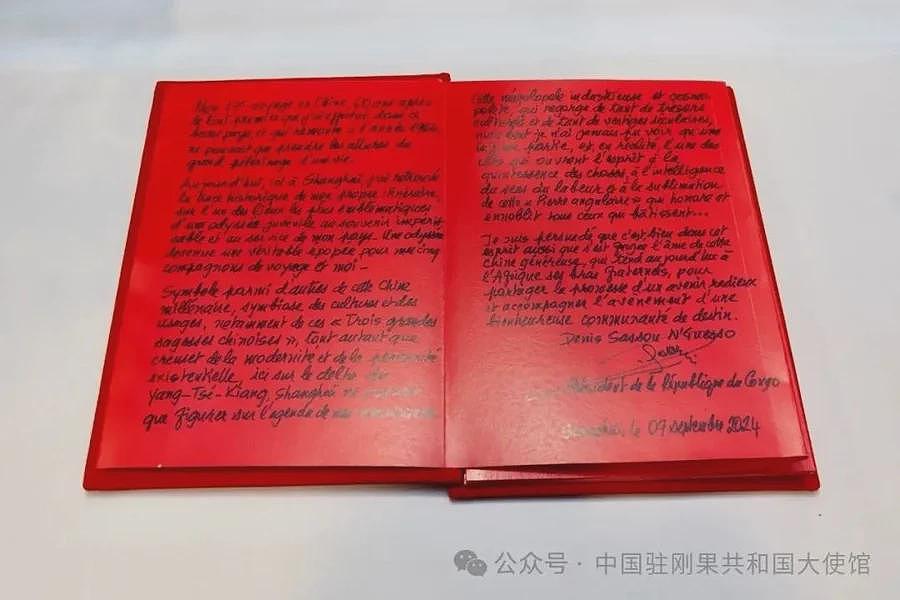 Mon 17e voyage en Chine, 60 ans après
le tout premier que j'ai effectué dans ce
beau pays et qui remonte à l'année 1964,
ne pouvait que prendre les allures du
grand pèlerinage d'une vie.
Aujourd'hui, ici à Shanghaï, j'ai retrouvé
la trace historique de mon propre itinéraire,
sur l'un des lieux les plus emblématiques
d'une odyssée juvénile au souvenir imperis-
sable et au service de mon pays. Une odyssée
devenue une véritable épopée pour mes cinq
compagnons de voyage et moi -
Symbole parmi d'autres de cette Chine
millénaire, symbiose des cultures et des
usages, notamment de ces « Trois grandes
sagesses chinoises », tout autant que
creuset de la modernité et de la
existentielle, ici sur le delta du
Yang-Tsé-Kiang, Shanghaï ne pouvait
que figurer sur l'agenda de mes
Cette mégalopole industrieuse et cosmo-
polite, qui regorge de tant de trésors
culturels et de tant de vestiges séculaires,
dont je n'ai jamais pu voir qu'une
partie, est, en réalité, l'une des
clés qui ouvrent l'esprit à la
quintessence des choses, à l'intelligence
du sens du labeur et à la sublimation
de cette « Pierre angulaire » qui honore et
ennoblit tous ceux qui bâtissent...
Je suis persuadé que c'est bien dans cet
esprit aussi que s'est forgée l'âme de cette
Chine généreuse, qui tend aujourd'hui à
l'Afrique ses bras fraternels, pour
partager la promesse d'un avenir radieux
et accompagner l'avènement d'une
bienheureuse communauté de destin.
Denis Sassou N'Guesso
Président de la République du Congo
Shanghaï, le 09 septembre 2024
公众号 · 中国驻刚果共和国大使馆